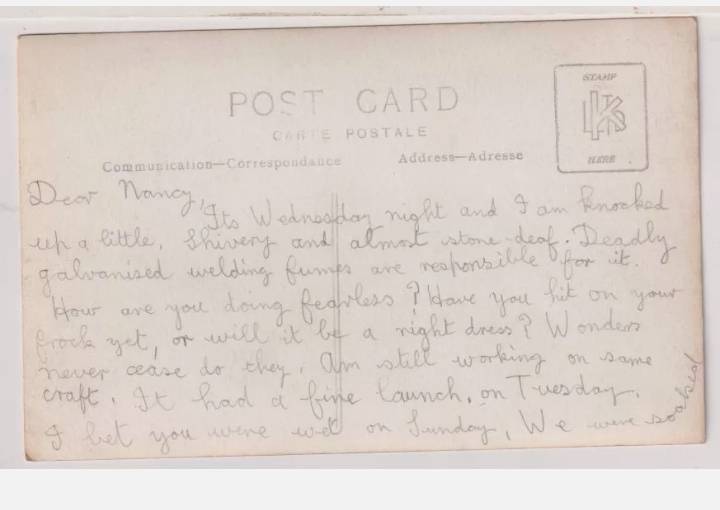 POST CARD
CARTE POSTALE
Communication—Correspondance
Address—Adresse
STAMP
HERE
Dear Nancy,
Its Wednesday night and I am knocked
up a little. Shivery and almost stone-deaf. Deadly
galvanised welding fumes are responsible for it.
How are you doing fearless? Have you hit on your
frock yet, or will it be a night dress? Wonders
never cease do they. Am still working on same
craft. It had a fine launch, on Tuesday.
I bet you were wet on Sunday, We were soaked